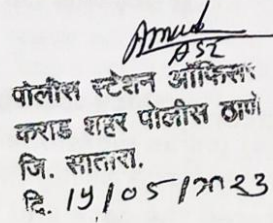 ASI
पोलीस स्टेशन ऑफिसर
कराड शहर पोलीस ठाणे
जि. सातारा.
दि. 15/05/2023